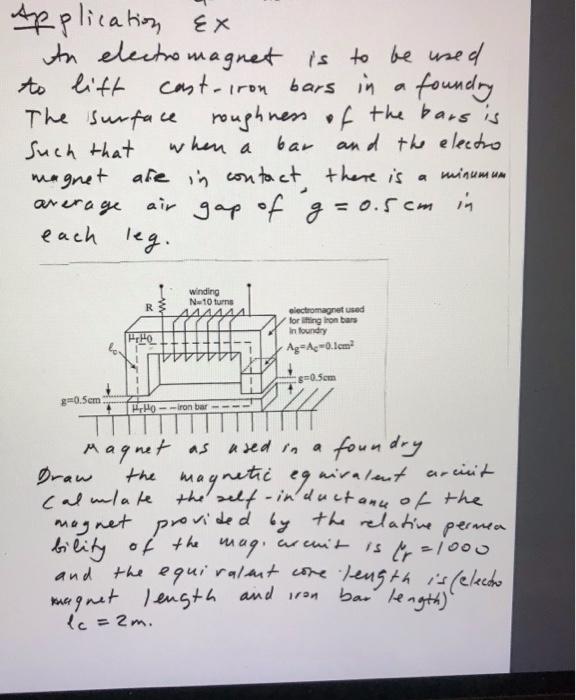 Application Ex
An electromagnet is to be used
to lift cast-iron bars in a foundry
The surface roughness of the bars is
such that when a bar and the electro
magnet are in contact, there is a minumum
average air gap of g = 0.5 cm in
each leg.
winding
N=10 turns
R
electromagnet used
for lifting iron bars
in foundry
μrμ0
lc
Ag=Ac=0.1cm²
g=0.5cm
g=0.5cm
μrμ0 --iron bar
Magnet as used in a foundry
Draw the magnetic equivalent circuit
Calculate the self-inductance of the
magnet provided by the relative permea
bility of the mag. circuit is μr = 1000
and the equivalent core length is (electro
magnet length and iron bar length)
lc = 2m.